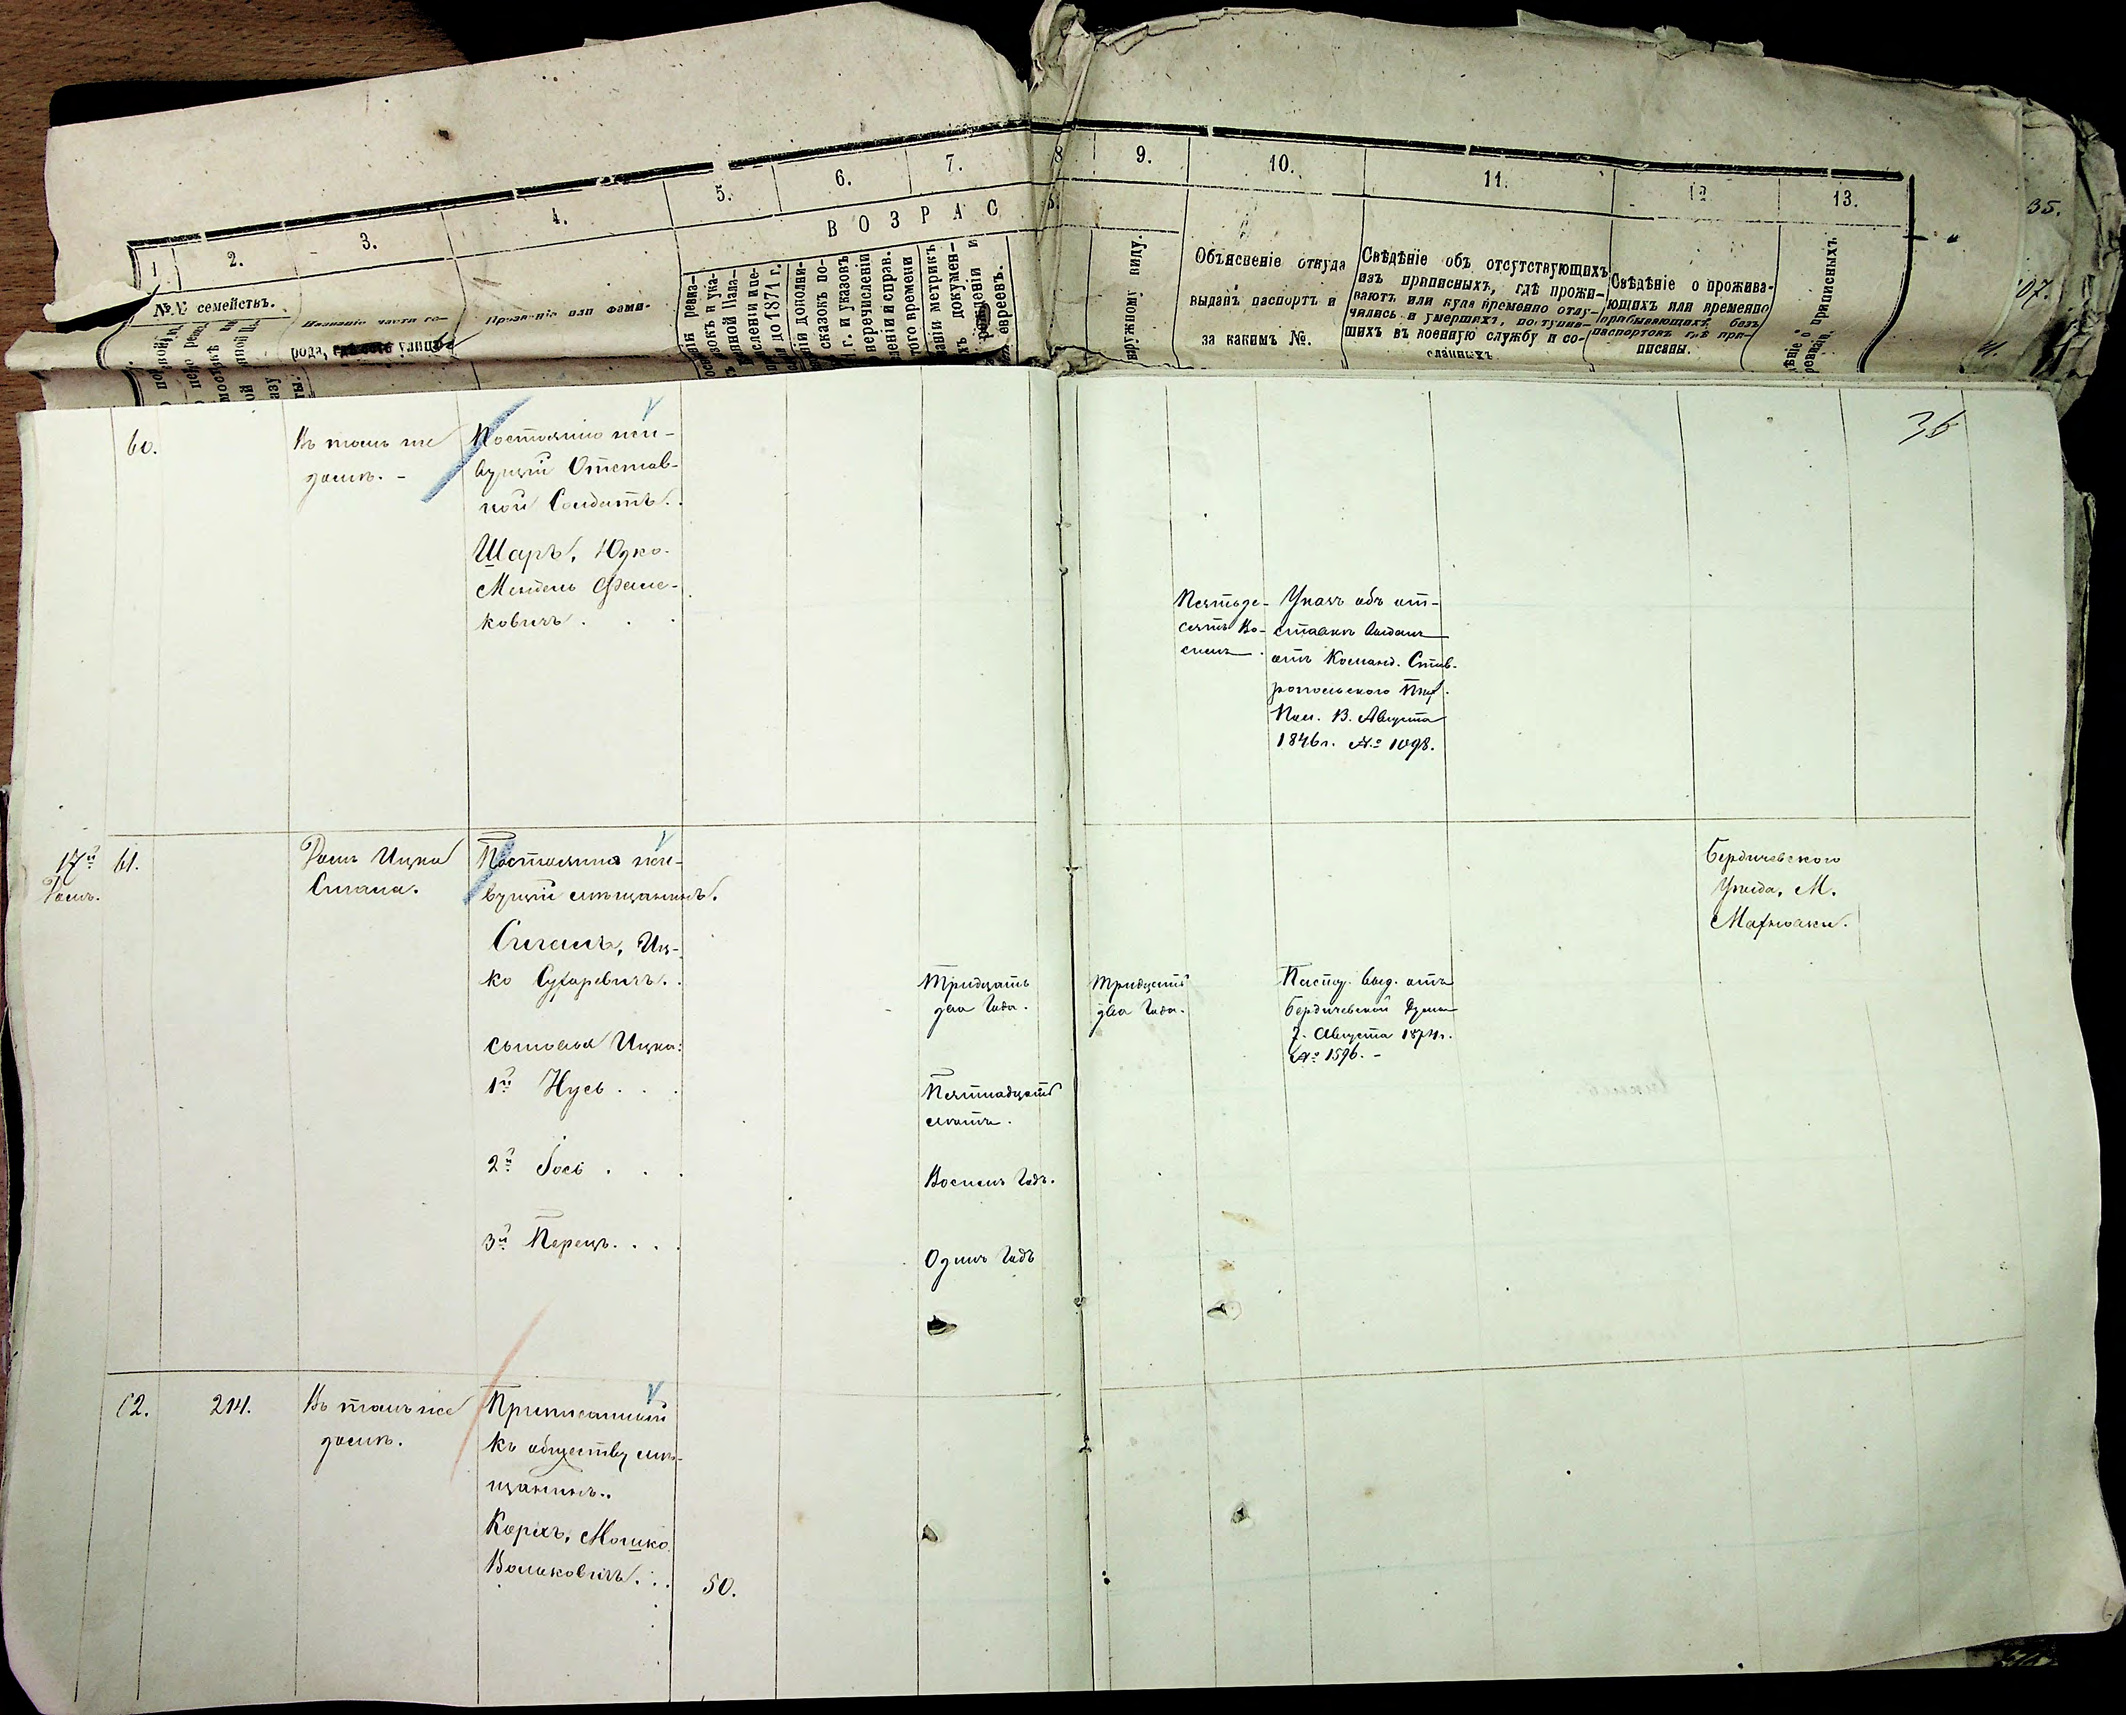 1. 2. 3. 4. 5. 6. 7. 8. 9. 10. 11. 12. 13.
ВОЗРАС
№№ семействъ.
Названіе части го-
рода, улицы
Прозваніе или фами-
наружному виду.
Объясненіе откуда
выданъ паспортъ и
за какимъ №.
Свѣдѣніе объ отсутствующихъ
изъ приписныхъ, гдѣ прожи-
ваютъ или куда временно отлу-
чились и умершихъ, поступив-
шихъ въ военную службу и со-
сланныхъ.
Свѣдѣніе о прожива-
ющихъ или временно
прибывающихъ, безъ
паспортовъ гдѣ при-
писаны.
приписныхъ
35.
107.
36
60.
Въ томъ же
домѣ. -
Постоянно жи-
вущій Отстав-
ной Солдатъ.
Шаръ, Юдко-
Мендель
ковичъ . . .
Пятьде-
сятъ Во-
семь.
Указъ объ от-
ставкѣ выданъ
отъ Команд. Став-
ропольского Пѣх.
Пол. 13. Августа
1846г. № 1098.
17й
Домъ.
61.
Домъ Ицка
Сигала.
Постоянно жи-
вущій мѣщанинъ.
Сигалъ, Иц-
ко Сухаревичъ. .
Тридцать
два Года.
Тридцать
два Года.
Паспор. выд. отъ
Бердичевской Думы
7. Августа 1874г.
№ 1596. -
Бердичевского
Уѣзда, М.
Махновки.
сыновья Ицка:
1й Нусь . . .
Пятнадцать
лѣтъ.
2й Іось . . .
Восемь Годъ.
3й Перецъ. . . .
Одинъ Годъ
62.
214.
Въ томъ же
домѣ.
Приписанный
къ обществу мѣ-
щанинъ..
Корихъ, Мошко
Вольковичъ. . .
50.